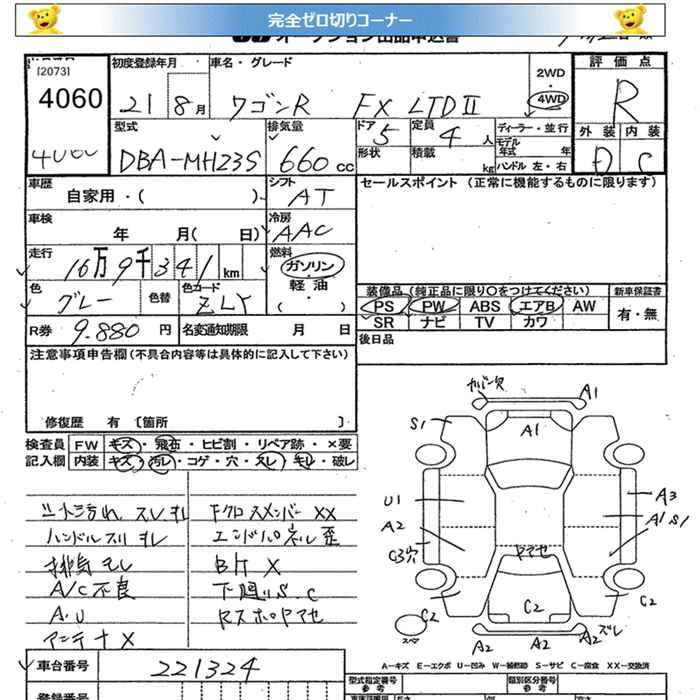 完全ゼロ切りコーナー
オークション出品申込書
[2073]
4060
初度登録年月
21 8月
車名・グレード
ワゴンR FX LTDⅡ
2WD
・
4WD
評価点
R
外装 内装
D C
型式
DBA-MH23S
排気量
660 cc
ドア 5
定員 4 人
形状
積載 kg
ディーラー・並行
モデル年式 年
ハンドル 左・右
車歴
自家用・( )
シフト
AT
セールスポイント (正常に機能するものに限ります)
車検
年 月( 日)
冷房
AAC
走行
16万9千341km
燃料
ガソリン
・
軽油
( ・ )
色
グレー
色替
色コード
ZLY
装備品(純正品に限り○をつけてください)
PS PW ABS エアB AW
SR ナビ TV カワ
新車保証書
有・無
R券 9.880 円
名変通知期限 月 日
後日品
注意事項申告欄(不具合内容等は具体的に記入して下さい)
修復歴 有 [箇所 ]
検査員記入欄
FW キズ・飛石・ヒビ割・リペア跡・×要
内装 キズ・汚レ・コゲ・穴・スレ・キレ・破レ
シート汚れ スレ キレ
ハンドルスリ キレ
排気モレ
A/C不良
A.U
アンテナX
Fクロスメンバー XX
エンドパネル歪
BドX
下廻りS.C
カバー欠
A1
S1
A1
U1
A2
C3穴
A3
A1 S1
C2
C2
C2
スペア
A2
A2
A2 ズレ
A-キズ E-エクボ U-凹み W-補修跡 S-サビ C-腐食 XX-交換済
車台番号
221324
登録番号
型式指定番号
参考
類別区分番号
参考